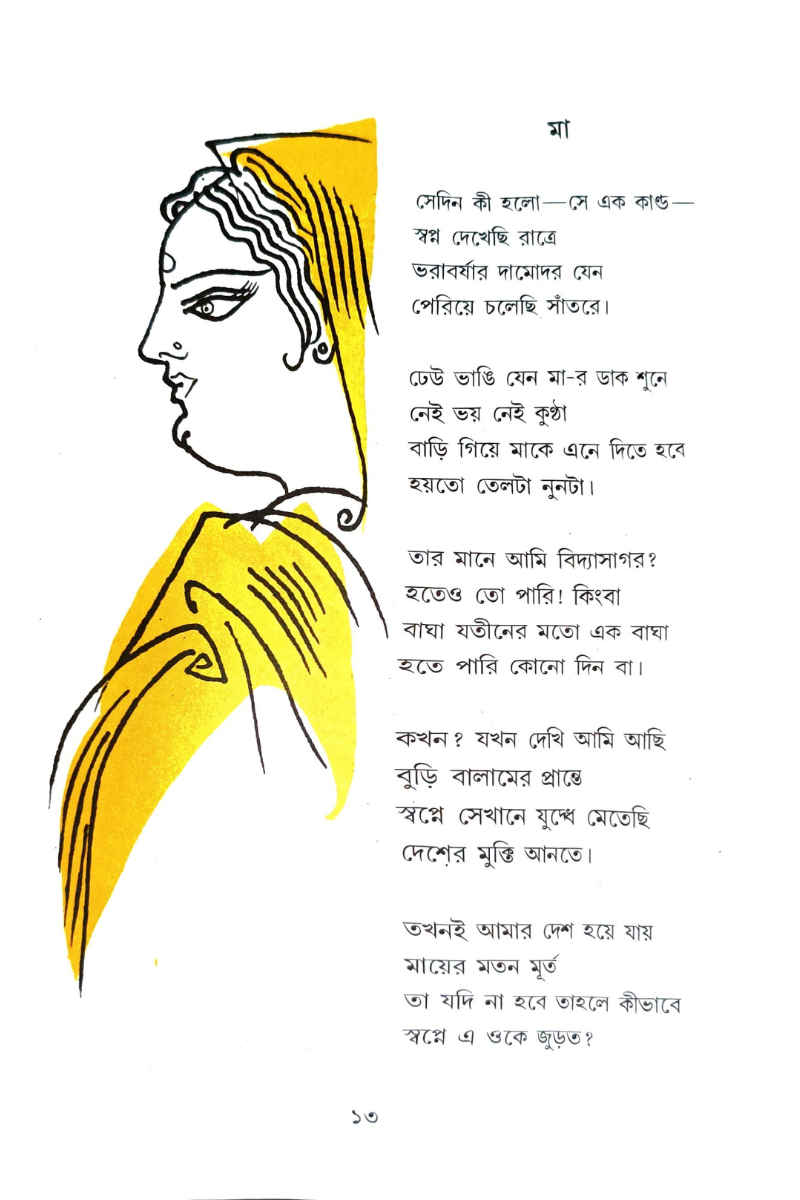 মা
সেদিন কী হলো—সে এক কাণ্ড—
স্বপ্ন দেখেছি রাত্রে
ভরাবর্ষার দামোদর যেন
পেরিয়ে চলেছি সাঁতরে।
ঢেউ ভাঙি যেন মা-র ডাক শুনে
নেই ভয় নেই কুণ্ঠা
বাড়ি গিয়ে মাকে এনে দিতে হবে
হয়তো তেলটা নুনটা।
তার মানে আমি বিদ্যাসাগর?
হতেও তো পারি! কিংবা
বাঘা যতীনের মতো এক বাঘা
হতে পারি কোনো দিন বা।
কখন? যখন দেখি আমি আছি
বুড়ি বালামের প্রান্তে
স্বপ্নে সেখানে যুদ্ধে মেতেছি
দেশের মুক্তি আনতে।
তখনই আমার দেশ হয়ে যায়
মায়ের মতন মূর্ত
তা যদি না হবে তাহলে কীভাবে
স্বপ্নে এ ওকে জুড়ত?
১৩